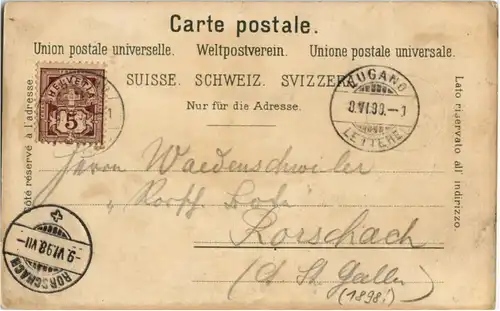 Carte postale.
Union postale universelle. Weltpostverein. Unione postale universale.
SUISSE. SCHWEIZ. SVIZZERA.
Nur für die Adresse.
Côté réservé à l'adresse.
Lato riservato all' indirizzo.
HELVETIA
5
LUGANO
9.VI.98.-1
LETTERE
Herrn Waedenschwiler
Rorschach
(Ct. St. Gallen)
(1898!)
RORSCHACH
9.VI.98.VII-